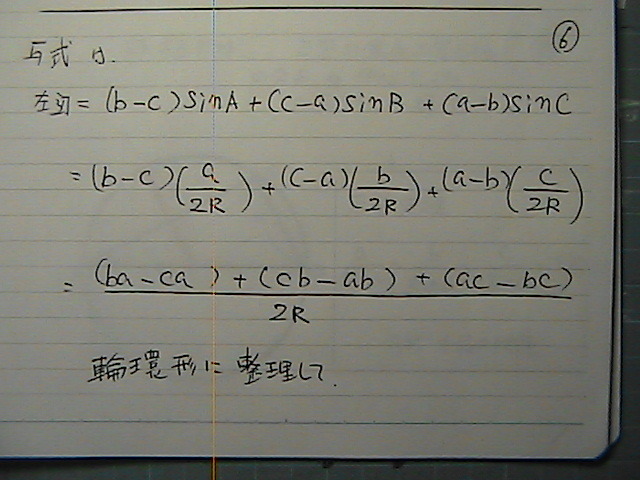 ⑥
与式は.
左辺 = (b-c)sinA + (c-a)sinB + (a-b)sinC
= (b-c)(a/2R) + (c-a)(b/2R) + (a-b)(c/2R)
= (ba-ca) + (cb-ab) + (ac-bc) / 2R
輪環形に整理して.